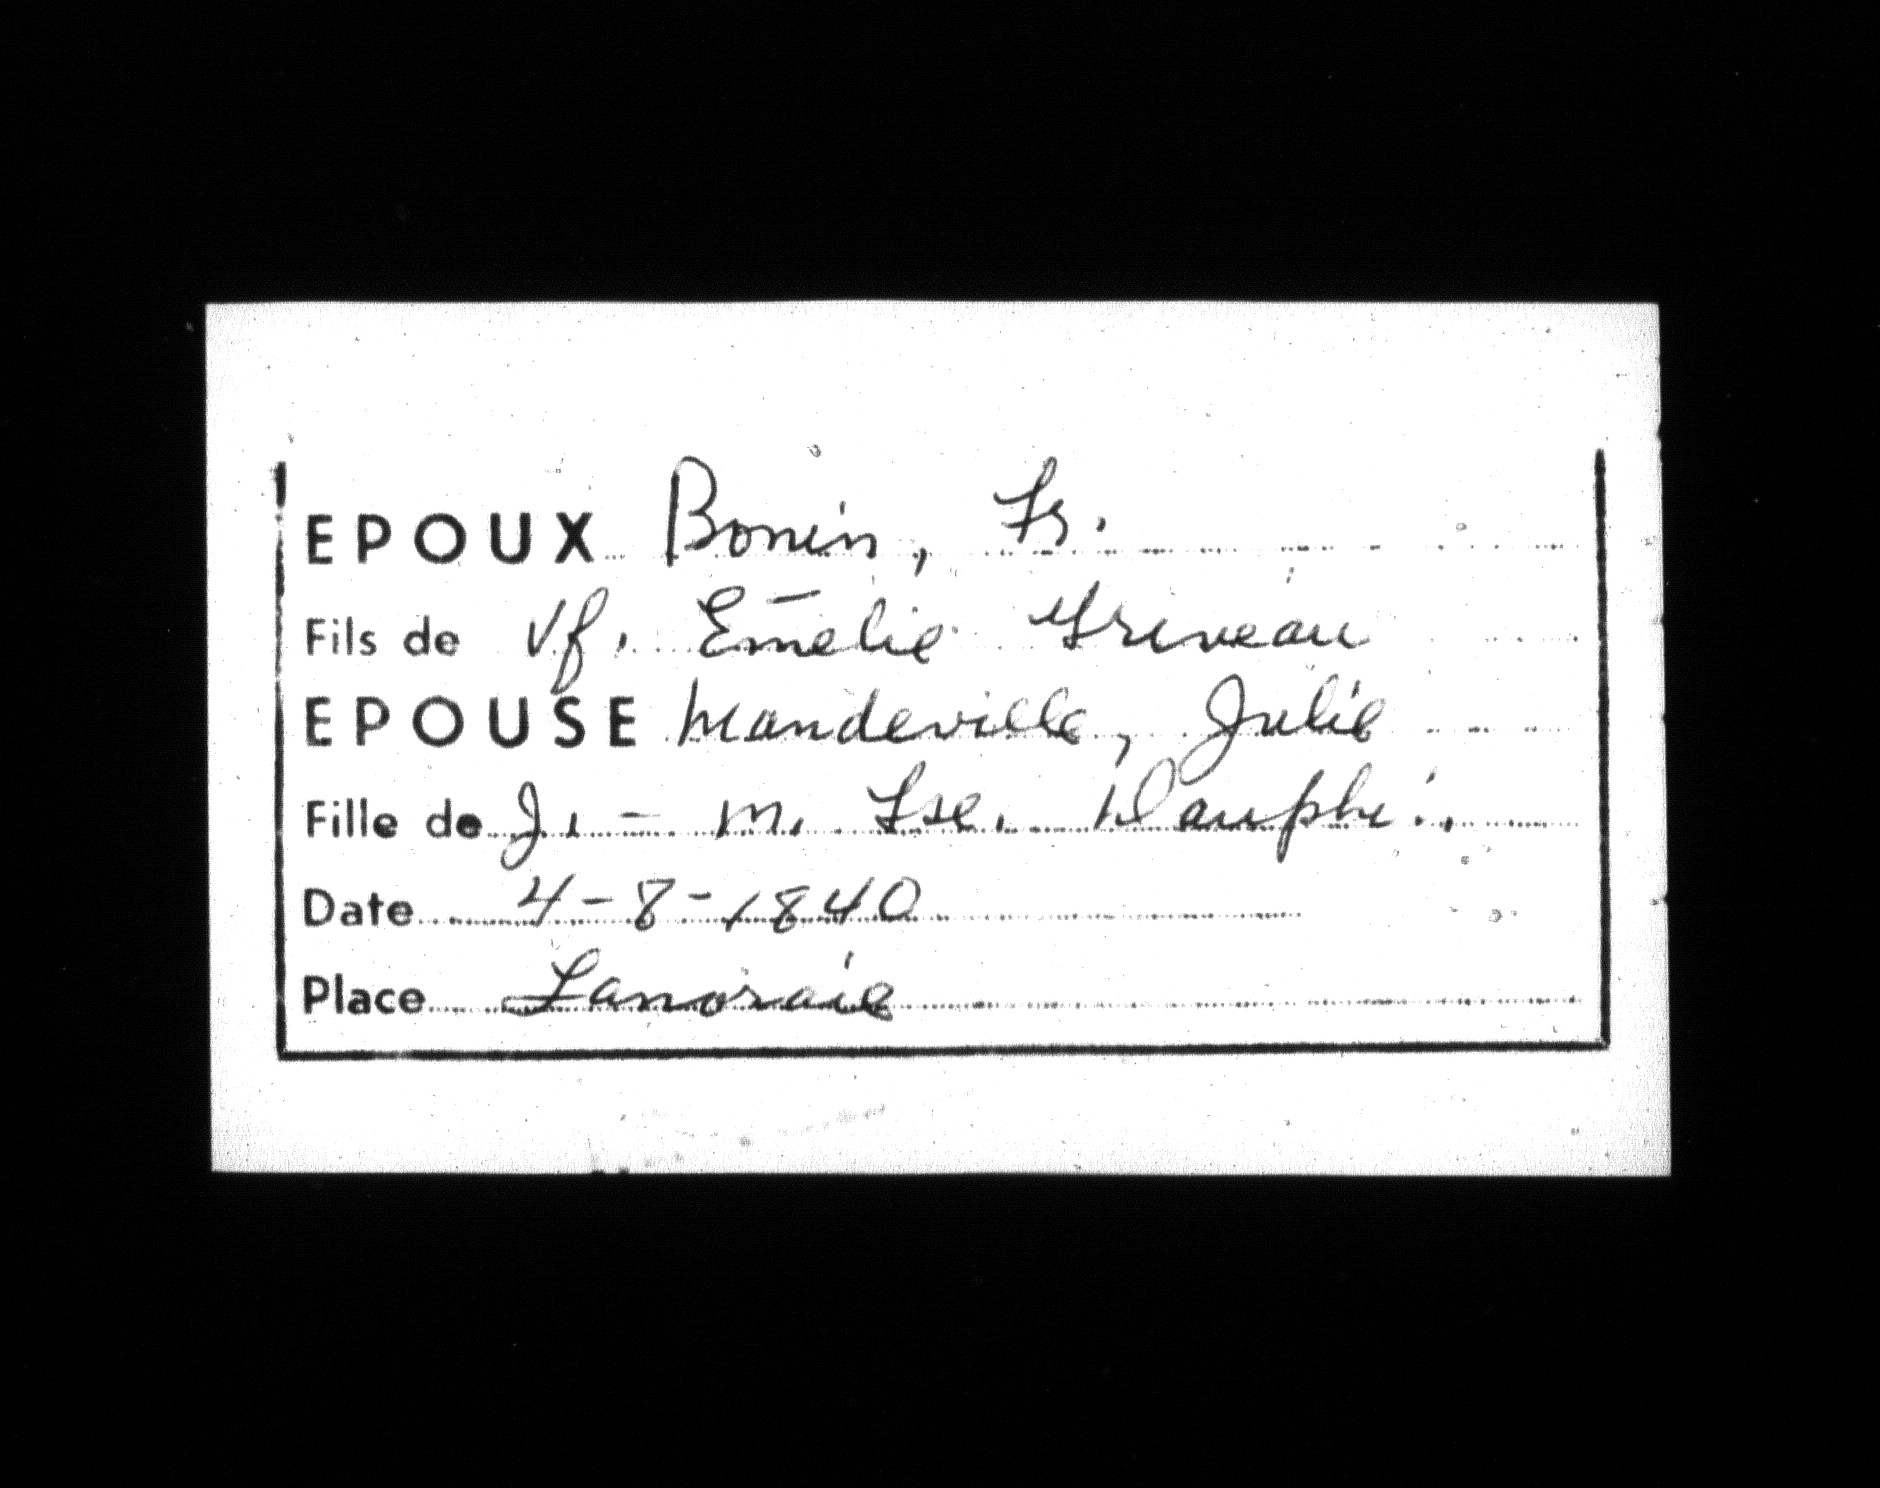 EPOUX Bonin, Fr.
Fils de Vf. Emélie Griveau
EPOUSE Mandeville, Julie
Fille de J. - M. Fse. Dauphi..
Date 4-8-1840
Place Lanoraie